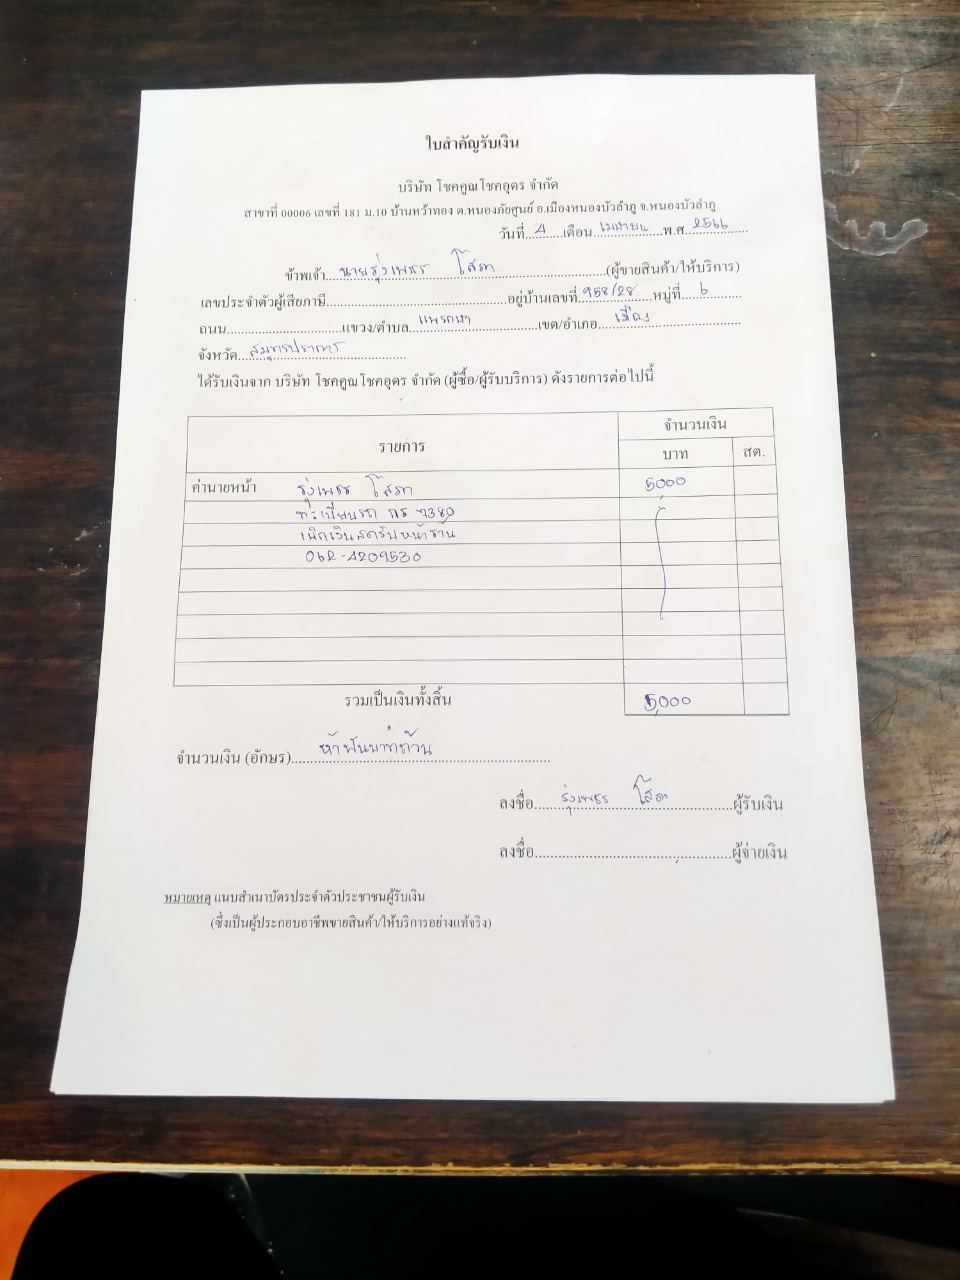 ใบสำคัญรับเงิน
บริษัท โชคคูณโชคอุดร จำกัด
สาขาที่ 00006 เลขที่ 181 ม.10 บ้านหว้าทอง ต.หนองภัยศูนย์ อ.เมืองหนองบัวลำภู จ.หนองบัวลำภู
วันที่ 4 เดือน เมษายน พ.ศ. 2566
ข้าพเจ้า นายรุ่งเพชร โสภา (ผู้ขายสินค้า/ให้บริการ)
เลขประจำตัวผู้เสียภาษี อยู่บ้านเลขที่ 958/28 หมู่ที่ 6
ถนน แขวง/ตำบล แพรกษา เขต/อำเภอ เมือง
จังหวัด สมุทรปราการ
ได้รับเงินจาก บริษัท โชคคูณโชคอุดร จำกัด (ผู้ซื้อ/ผู้รับบริการ) ดังรายการต่อไปนี้
รายการ จำนวนเงิน
บาท สต.
ค่านายหน้า รุ่งเพชร โสภา 5000
ทะเบียนรถ กร 7380
เบิกเงินสดรับหน้าร้าน
062-4209530
รวมเป็นเงินทั้งสิ้น 5,000
จำนวนเงิน (อักษร) ห้าพันบาทถ้วน
ลงชื่อ รุ่งเพชร โสภา ผู้รับเงิน
ลงชื่อ ผู้จ่ายเงิน
หมายเหตุ แนบสำเนาบัตรประจำตัวประชาชนผู้รับเงิน
(ซึ่งเป็นผู้ประกอบอาชีพขายสินค้า/ให้บริการอย่างแท้จริง)